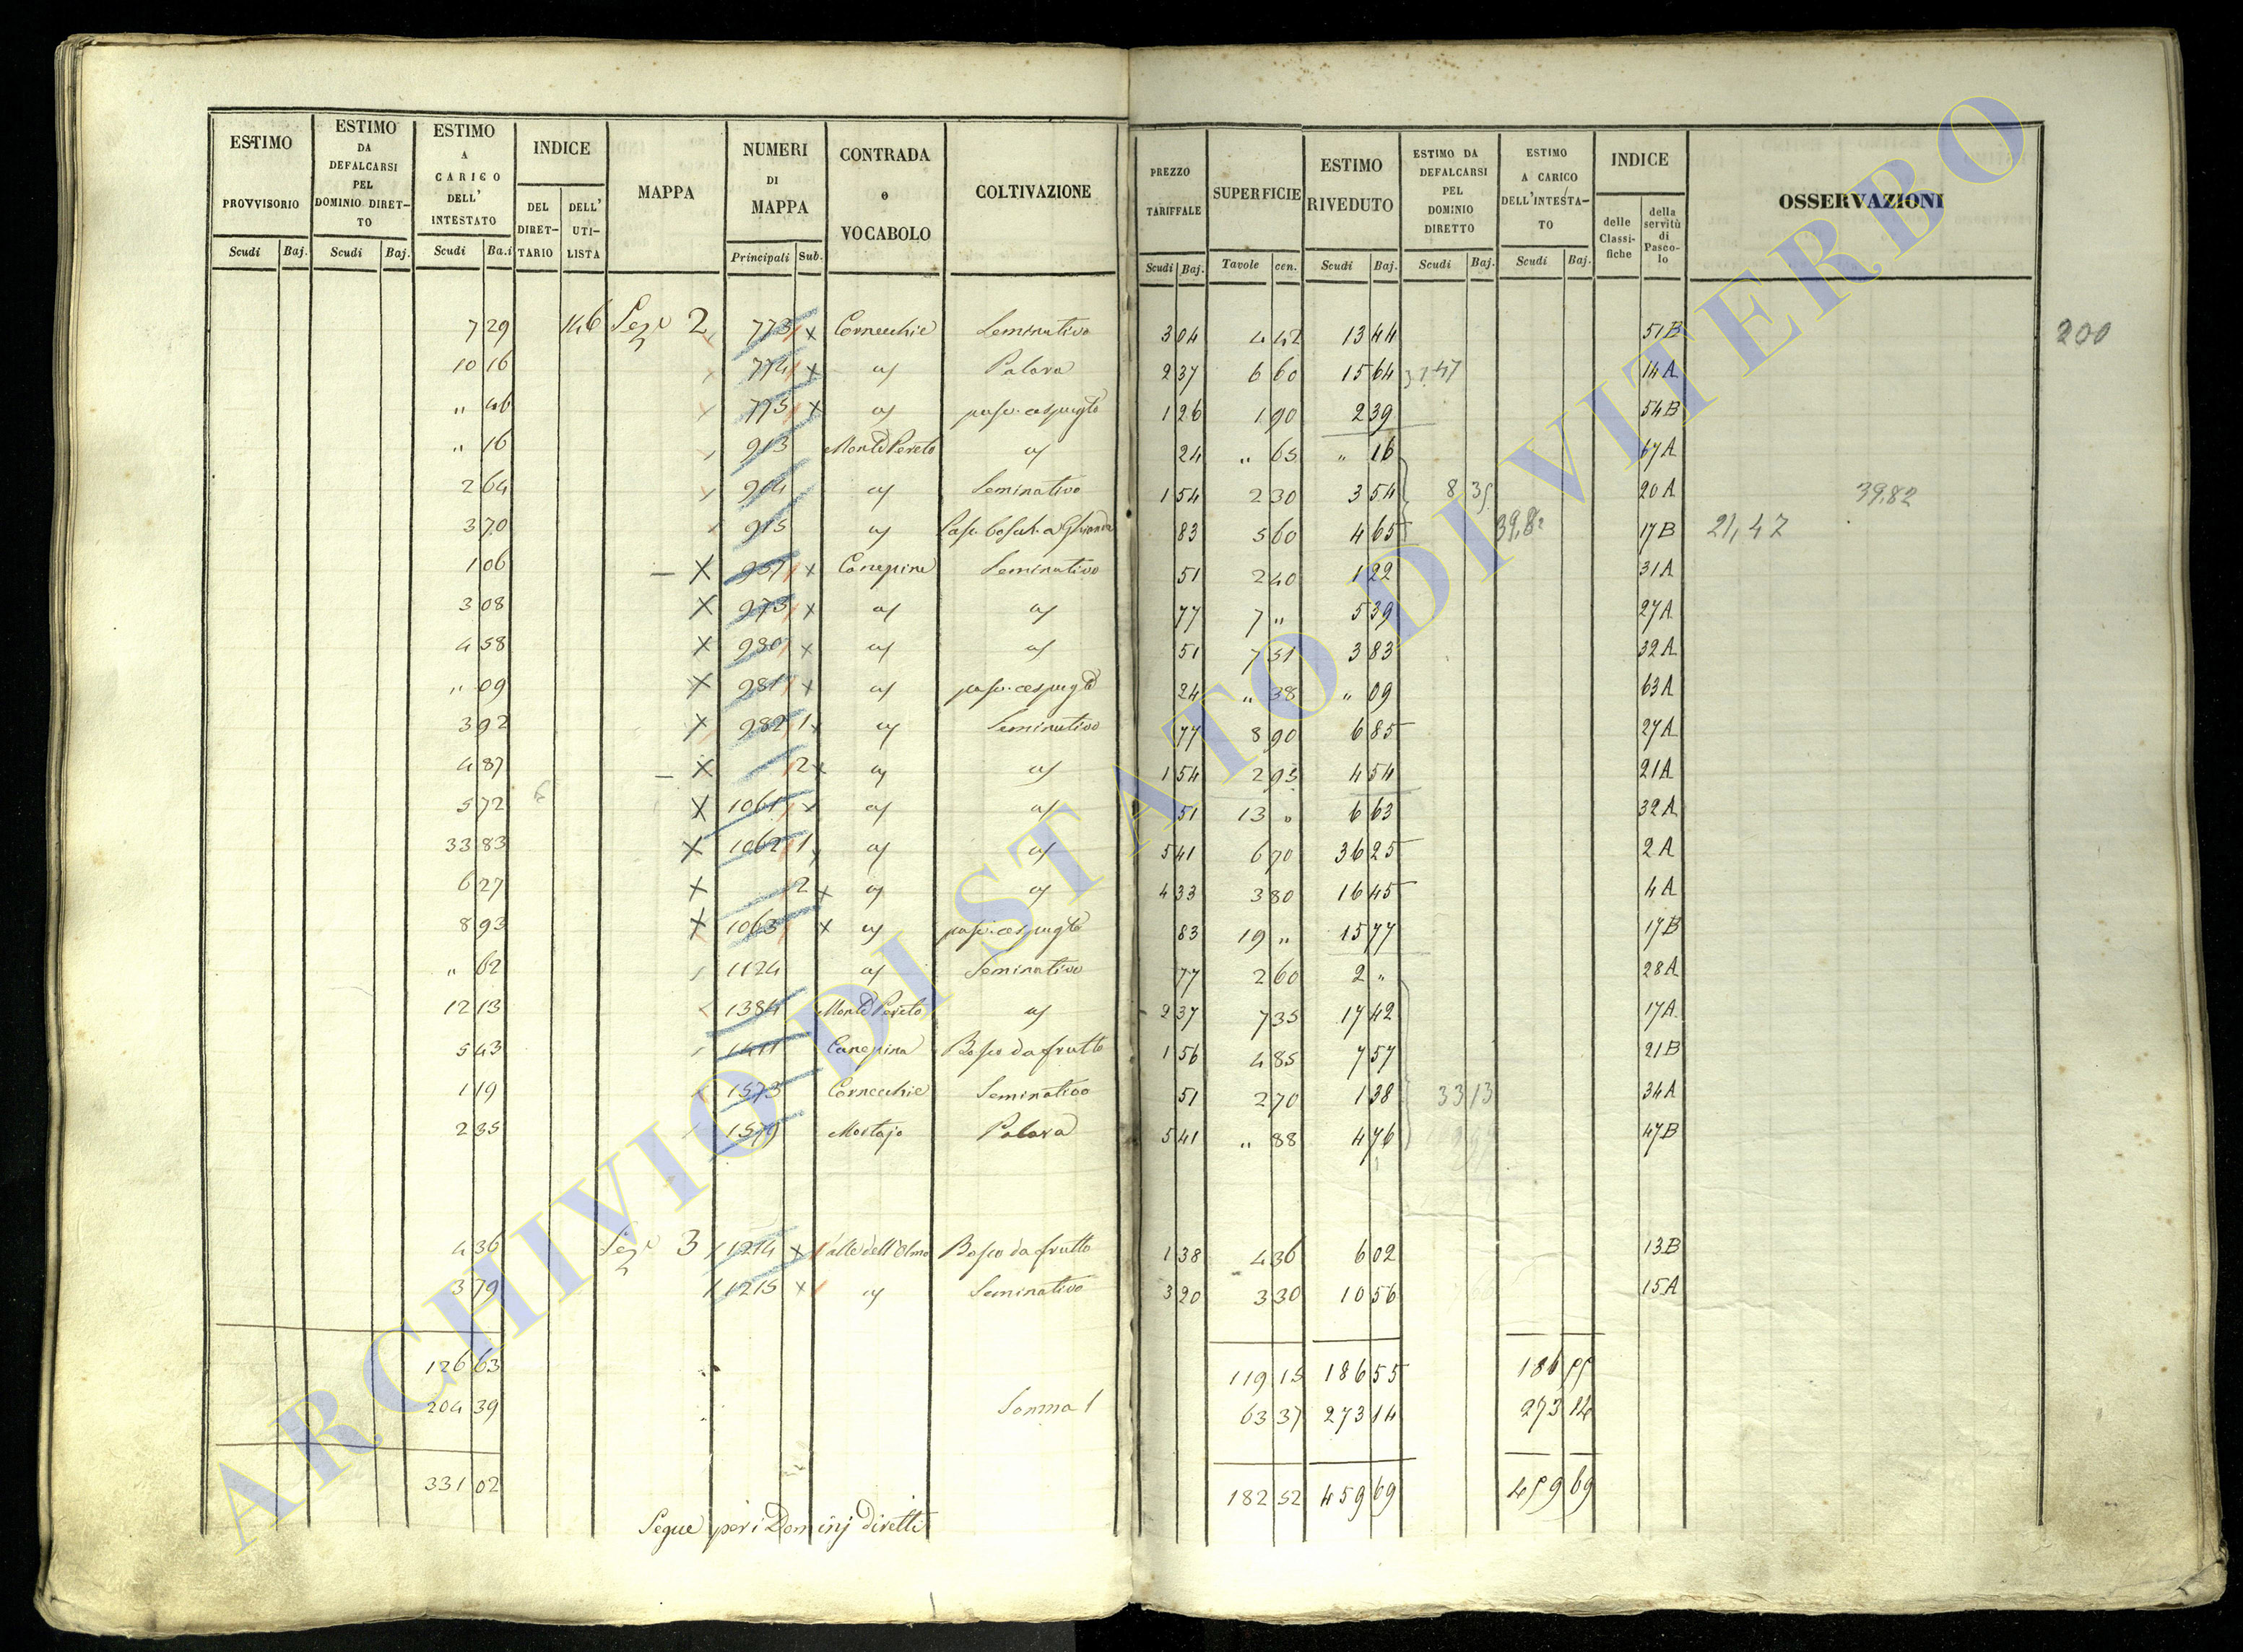 ESTIMO PROVVISORIO
ESTIMO DA DEFALCARSI PEL DOMINIO DIRET-TO
ESTIMO A CARICO DELL' INTESTATO
INDICE
DEL DIRET-TARIO
DELL' UTI-LISTA
MAPPA
NUMERI DI MAPPA
CONTRADA o VOCABOLO
COLTIVAZIONE
PREZZO TARIFFALE
SUPERFICIE
ESTIMO RIVEDUTO
ESTIMO DA DEFALCARSI PEL DOMINIO DIRETTO
ESTIMO A CARICO DELL'INTESTA-TO
INDICE
delle Classi-fiche
della servitù di Pasco-lo
OSSERVAZIONI
Scudi Baj. Scudi Baj. Scudi Ba.i Principali Sub. Scudi Baj. Tavole cen. Scudi Baj. Scudi Baj. Scudi Baj.
7 29 146 Sez.e 2 773 x Cornecchie Seminativo 3 04 4 42 13 44 51B 200
10 16 774 x " Palara 2 37 6 60 15 64 31,47 14A
" 46 775 x " pasc. cespugto 1 26 1 90 2 39 54B
" 16 913 Monte Pereto " 24 " 65 " 16 67A
2 64 914 " Seminativo 1 54 2 30 3 54 8 35 20A 39,82
3 70 915 " 83 5 60 4 65 39,82 17B 21,47
1 06 X 957 x Canepine Seminativo 51 2 40 1 22 31A
3 08 X 973 x " " 77 7 " 5 39 27A
4 58 X 980 x " " 51 7 51 3 83 32A
" 09 X 981 x " pasc. cespugto 24 " 38 " 09 63A
3 92 X 982 1 x " Seminativo 77 8 90 6 85 27A
4 87 X 2 x " " 1 54 2 95 4 54 21A
5 72 X 1061 x " " 51 13 " 6 63 32A
33 83 X 1062 1 x " " 5 41 6 70 36 25 2A
6 27 X 2 x " " 4 33 3 80 16 45 4A
8 93 X 1063 x " pasc. cespugto 83 19 " 15 77 17B
" 62 1124 " Seminativo 77 2 60 2 " 28A
12 13 1384 Monte Pereto " 2 37 7 35 17 42 17A
5 43 1411 Canepina Bosco da frutto 1 56 4 85 7 57 21B
1 19 1573 Cornecchie Seminativo 51 2 70 1 38 33 13 34A
2 35 1579 Mortajo Palara 5 41 " 88 4 76 47B
4 36 Sez.e 3 1214 x Valle dell'Olmo Bosco da frutto 1 38 4 36 6 02 13B
3 79 1215 x " Seminativo 3 20 3 30 10 56 15A
126 63 119 15 186 55 186 55
204 39 Somma 1 63 37 273 14 273 14
331 02 182 52 459 69 459 69
Segue per i Dominj diretti
ARCHIVIO DI STATO DI VITERBO